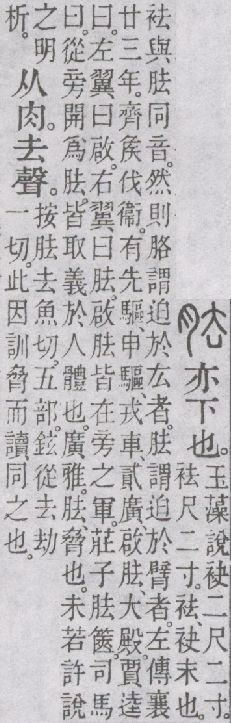 胠亦下也。
玉藻說袂二尺二寸。
袪尺二寸。袪、袂末也。
袪與胠同音。然則胳謂迫於厷者。胠謂迫於臂者。左傳襄
廿三年。齊侯伐衞。有先驅、申驅、戎車、貳廣、啟胠、大殿。賈逵
曰。左翼曰啟。右翼曰胠。啟胠皆在旁之軍。莊子胠篋。司馬
曰。從旁開爲胠。皆取義於人體也。廣雅。胠、脅也。未若許說
之明
析。
从肉。去聲。
按胠去魚切。五部。鉉從去劫
一切。此因訓脅而讀同之也。